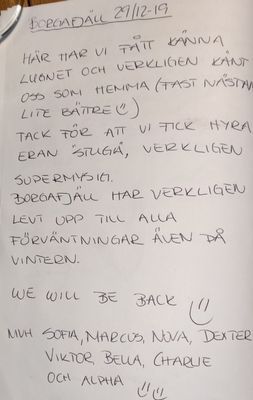 BORGAFJÄLL 29/12-19
HÄR HAR VI FÅTT KÄNNA
LUGNET OCH VERKLIGEN KÄNT
OSS SOM HEMMA (FAST NÄSTAN
LITE BÄTTRE☺)
TACK FÖR ATT VI FICK HYRA
ERAN STUGA, VERKLIGEN
SUPERMYSIG.
BORGAFJÄLL HAR VERKLIGEN
LEVT UPP TILL ALLA
FÖRVÄNTNINGAR ÄVEN PÅ
VINTERN.
WE WILL BE BACK ☺
MVH SOFIA, MARCUS, NOVA, DEXTER
VIKTOR, BELLA, CHARLIE
OCH ALPHA ☺☺